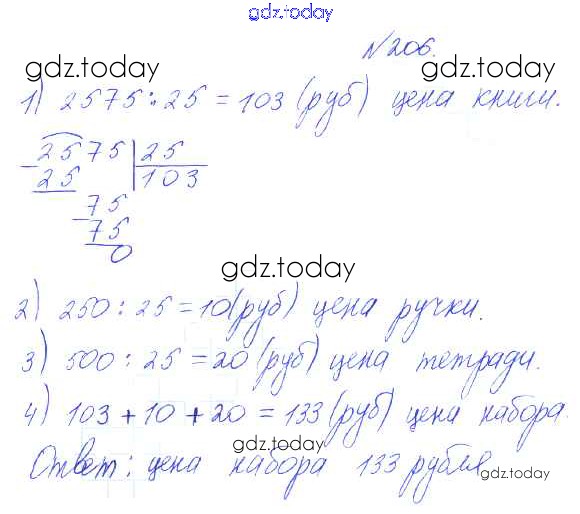 gdz.today
№206.
gdz.today gdz.today
1) 2575:25=103 (руб) цена книги.
2575 25
25 103
75
75
0
gdz.today
2) 250:25=10(руб) цена ручки.
3) 500:25=20 (руб) цена тетради.
4) 103+10+20=133(руб) цена набора.
gdz.today
Ответ: цена набора 133 рубля
gdz.today